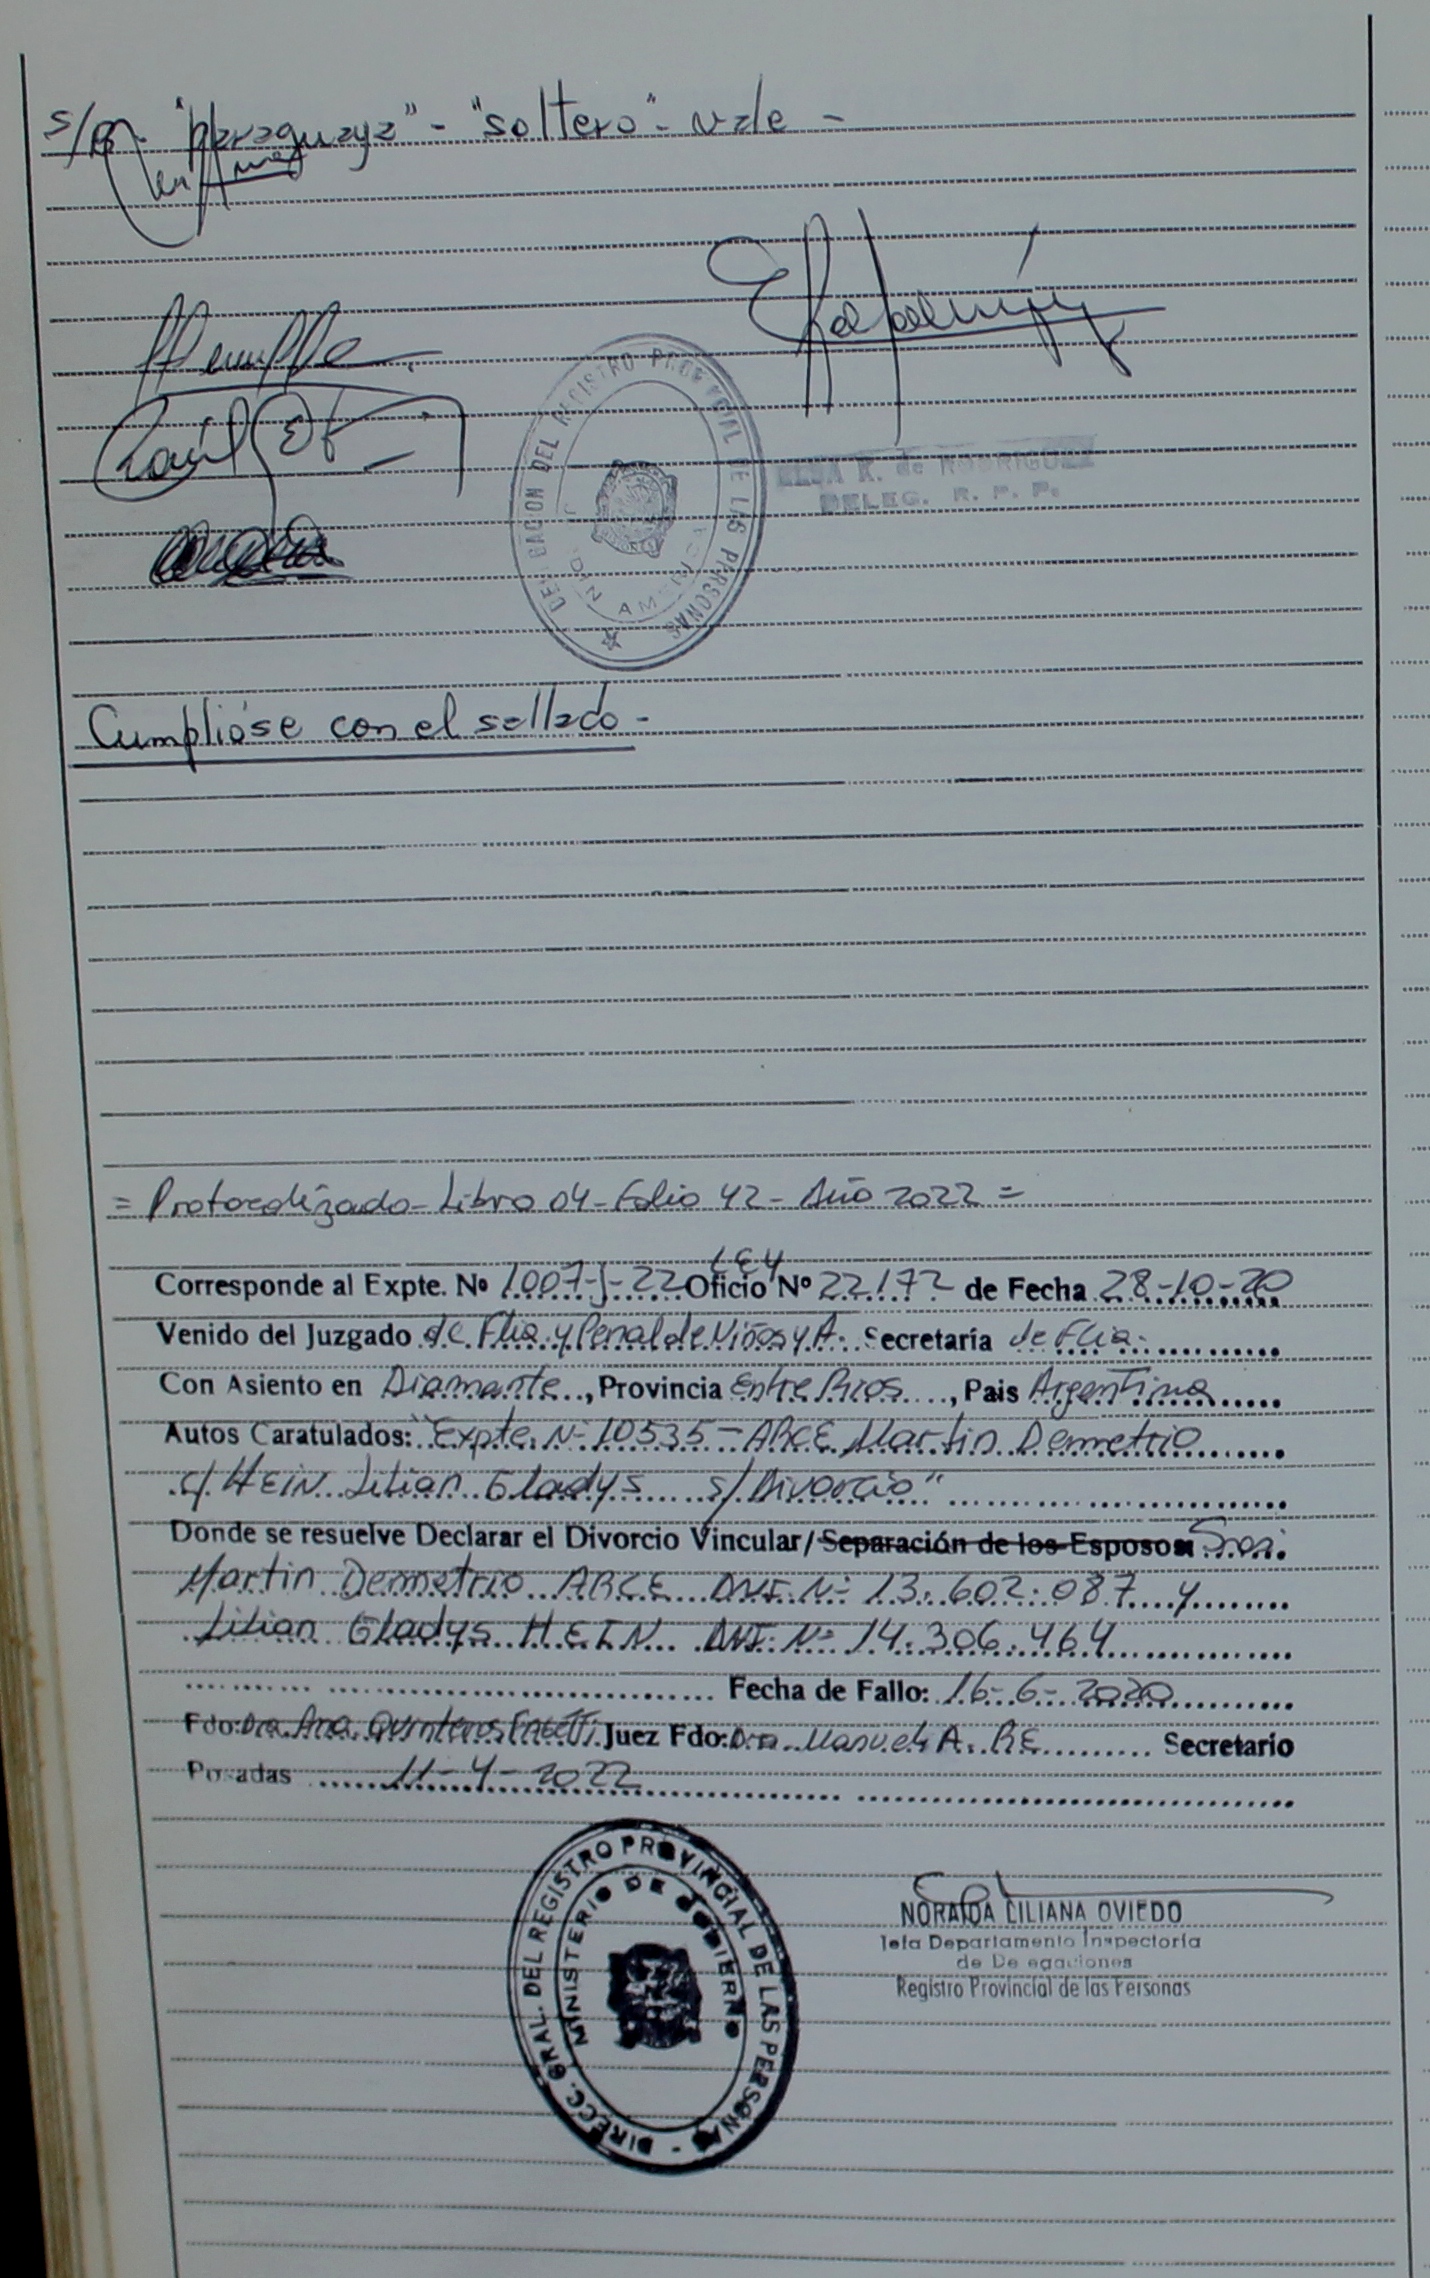 "paraguaya" - "soltero" - vale -
DELEGACION DEL REGISTRO PROVINCIAL DE LAS PERSONAS
JARDIN AMERICA
ELSA K. de RODRIGUEZ
DELEG. R. P. P.
Cumplióse con el sellado -
= Protocolizado - Libro 04 - Folio 42 - Año 2022 =
LEY
Corresponde al Expte. Nº 1007-J-22 Oficio Nº 22.172 de Fecha 28-10-20
Venido del Juzgado de Flia. y Penal de Niños y A. Secretaría de Flia.
Con Asiento en Diamante, Provincia Entre Rios, Pais Argentina
Autos Caratulados: "Expte. Nº 10535 - ARCE Martin Demetrio
c/ HEIN Lilian Gladys s/ Divorcio"
Donde se resuelve Declarar el Divorcio Vincular/Separación de los Esposos Sres.
Martin Demetrio ARCE DNI Nº 13.602.087 y
Lilian Gladys HEIN DNI Nº 14.306.464
Fecha de Fallo: 16-6-2020
Fdo: Dra. Ana Quinteros Juez Fdo: Dra. Manuela A. RE Secretario
Posadas 11-4-2022
DIRECC. GRAL. DEL REGISTRO PROVINCIAL DE LAS PERSONAS -
MINISTERIO DE GOBIERNO
NORAIDA LILIANA OVIEDO
Jefa Departamento Inspectoría
de Delegaciones
Registro Provincial de las Personas